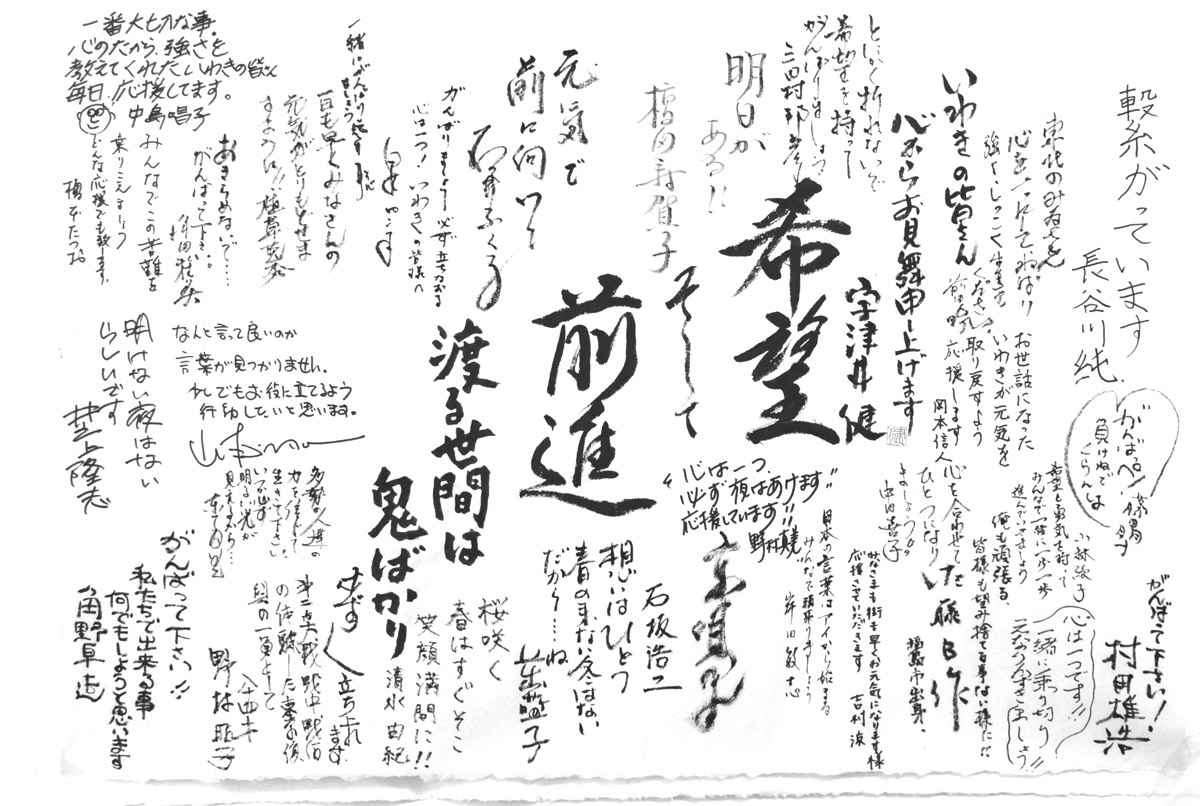 繋糸がっています
長谷川純
東北のみなさん
心を一つにしてねばり
強くしつこく生きて
ください。
いわきの皆さん
心からお見舞申し上げます
宇津井健
お世話になった
いわきが元気を
取り戻すよう
応援します
岡本信人
とにかく折れないで
希望を持って
がんばりましょう
三田村邦彦
明日が
ある!!
橋田壽賀子
希望
そして
前進
元気で
前に向いて
石井ふく子
がんばりましょう 必ず立ち直れる
心は一つ! いわきの皆様へ
一緒にがんばり
ましょう
一日も早くみなさんの
元気がとりもどせま
すように!!
あきらめないで……
がんばって下さい。
みんなでこの苦難を
乗りこえましょう
どんな応援でも致します。
一番大切な事。
心のたから、強さを
教えてくれたいわきの皆さん
毎日、応援してます。
中島唱子
なんと言って良いのか
言葉が見つかりません。
でもお役に立てるよう
行動したいと思います。
明けない夜はない
らしいです
井上隆志
渡る世間は
鬼ばかり
がんばるペン!
負けねでよ
くらんしょ
小林綾子
希望と勇気を持って
みんなで一緒に一歩一歩
進んでいきましょう
俺も頑張る、
皆様も望み捨てる事ない様に!!
佐藤B作
福島市出身。
心を合わせて
ひとつになり
ましょう。
中田喜子
みなさまも街も早くお元気になります様
応援させていただきます
吉村涼
日本の言葉はアイから始まる
みんなで頑張りましょう
岸田敏志
"心は一つ。
必ず夜はあけます"
応援しています!!
野村真美
京唄子
石坂浩二
想いはひとつ
春の来ない冬はない
だから……ね
山辺益子
桜咲く
春はすぐそこ
笑顔満開に!!
清水由紀
必ず立ち直れ
ます。
第二次大戦 戦中戦后
の体験した東の後
県の一員として
野村昭子
多勢の人達の
力を信じて
生きて下さい。
いつか必ず
明るい光が
見えるから…
がんばって下さい!!
私たちで出来る事
何でもしようと思います
角野卓造
心は一つです!!
一緒に乗り切り
元気な笑顔で生きましょう
がんばって下さい!
村田雄浩